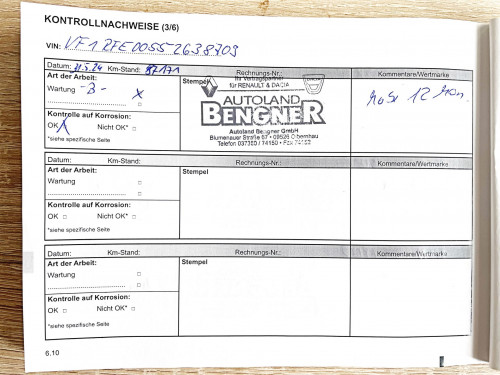 KONTROLLNACHWEISE (3/6)
VIN: VF1RFE00552638703
Datum: 21.5.24 Km-Stand: 87171 Rechnungs-Nr.: Kommentare/Wertmarke
Art der Arbeit: Stempel Ihr Vertragspartner
für RENAULT & DACIA
Wartung -B- X
AUTOLAND
BENGNER
Kontrolle auf Korrosion:
OK X Nicht OK* □
*siehe spezifische Seite
Autoland Bengner GmbH
Blumenauer Straße 67 • 09526 Olbernhau
Telefon 037360 / 74150 • Fax 74152
12 Mon.
Datum: Km-Stand: Rechnungs-Nr.: Kommentare/Wertmarke
Art der Arbeit: Stempel
Wartung □
□
Kontrolle auf Korrosion:
OK □ Nicht OK* □
*siehe spezifische Seite
Datum: Km-Stand: Rechnungs-Nr.: Kommentare/Wertmarke
Art der Arbeit: Stempel
Wartung □
□
Kontrolle auf Korrosion:
OK □ Nicht OK* □
*siehe spezifische Seite
6.10